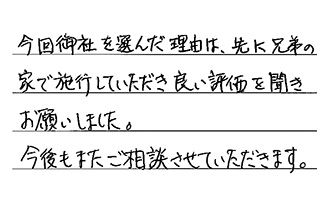 今回御社を選んだ理由は、先に兄弟の
家で施行していただき良い評価を聞き
お願いしました。
今後もまたご相談させていただきます。